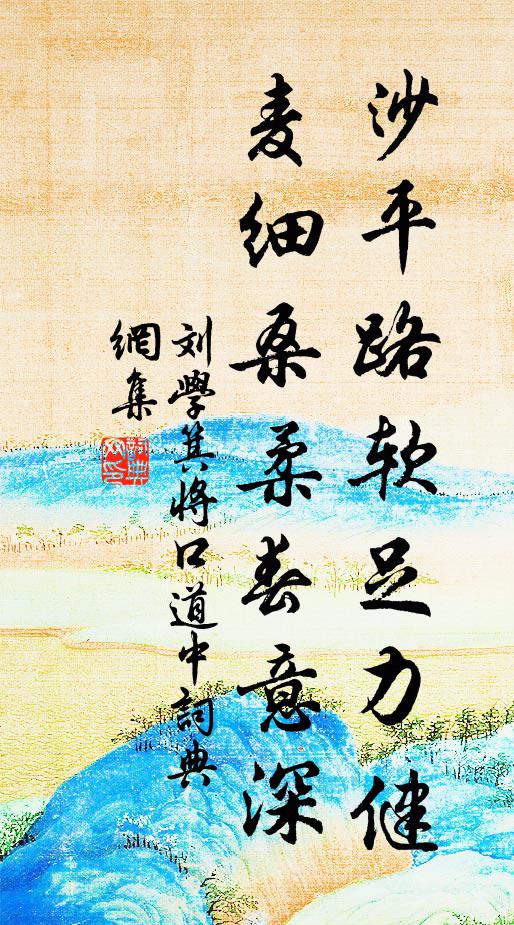 沙平路软足力健
麦细桑柔春意深
刘學箕将口道中詞典
網集